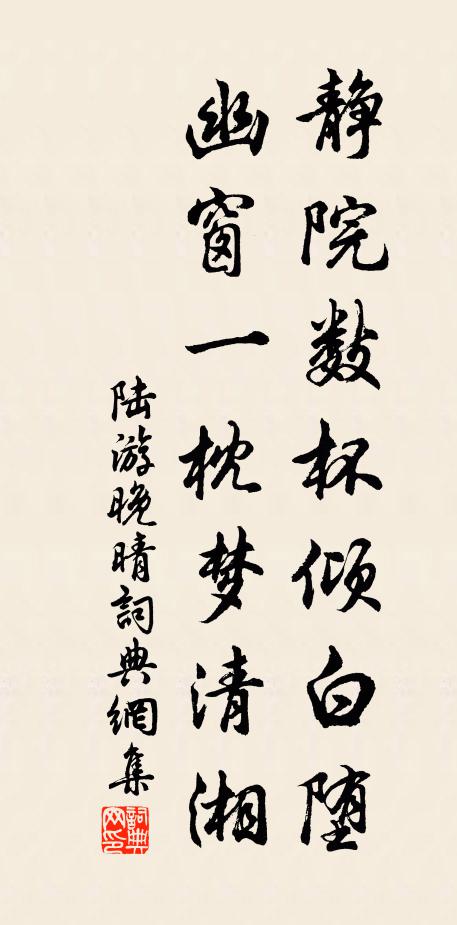 静院数杯倾白堕
幽窗一枕梦清湘
陆游晚晴詞典網集
詞典网印